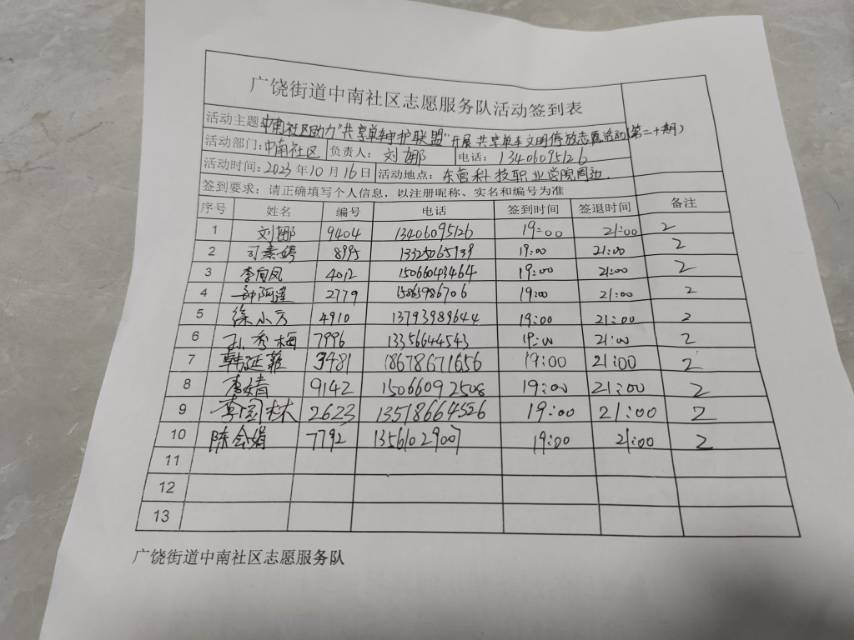 广饶街道中南社区志愿服务队活动签到表
活动主题:中南社区助力"共享单车守护联盟"开展共享单车文明停放志愿活动(第二十期)
活动部门:中南社区 负责人:刘娜 电话:13406095126
活动时间:2023年10月16日 活动地点:东营科技职业学院周边.
签到要求:请正确填写个人信息,以注册昵称、实名和编号为准
序号 姓名 编号 电话 签到时间 签退时间 备注
1 刘娜 9404 13406095126 19:00 21:00 2
2 8995 19:00 21:00 2
3 李向凤 4012 15066043464 19:00 21:00 2
4 2779 19:00 21:00 2
5 徐小芳 4910 13793989644 19:00 21:00 2
6 孙秀梅 7996 13356644543 19:00 21:00 2
7 韩延菲 3481 18678671656 19:00 21:00 2
8 李婧 9142 15066092508 19:00 21:00 2
9 2623 13518664526 19:00 21:00 2
10 陈会娟 7792 13561029007 19:00 21:00 2
11
12
13
广饶街道中南社区志愿服务队